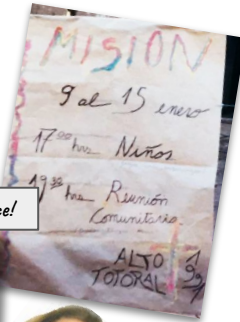 MISION
9 al 15 enero
17⁰⁰ hrs Niños
19³⁰ hrs Reunión
Comunitaria.
ALTO
TOTORAL